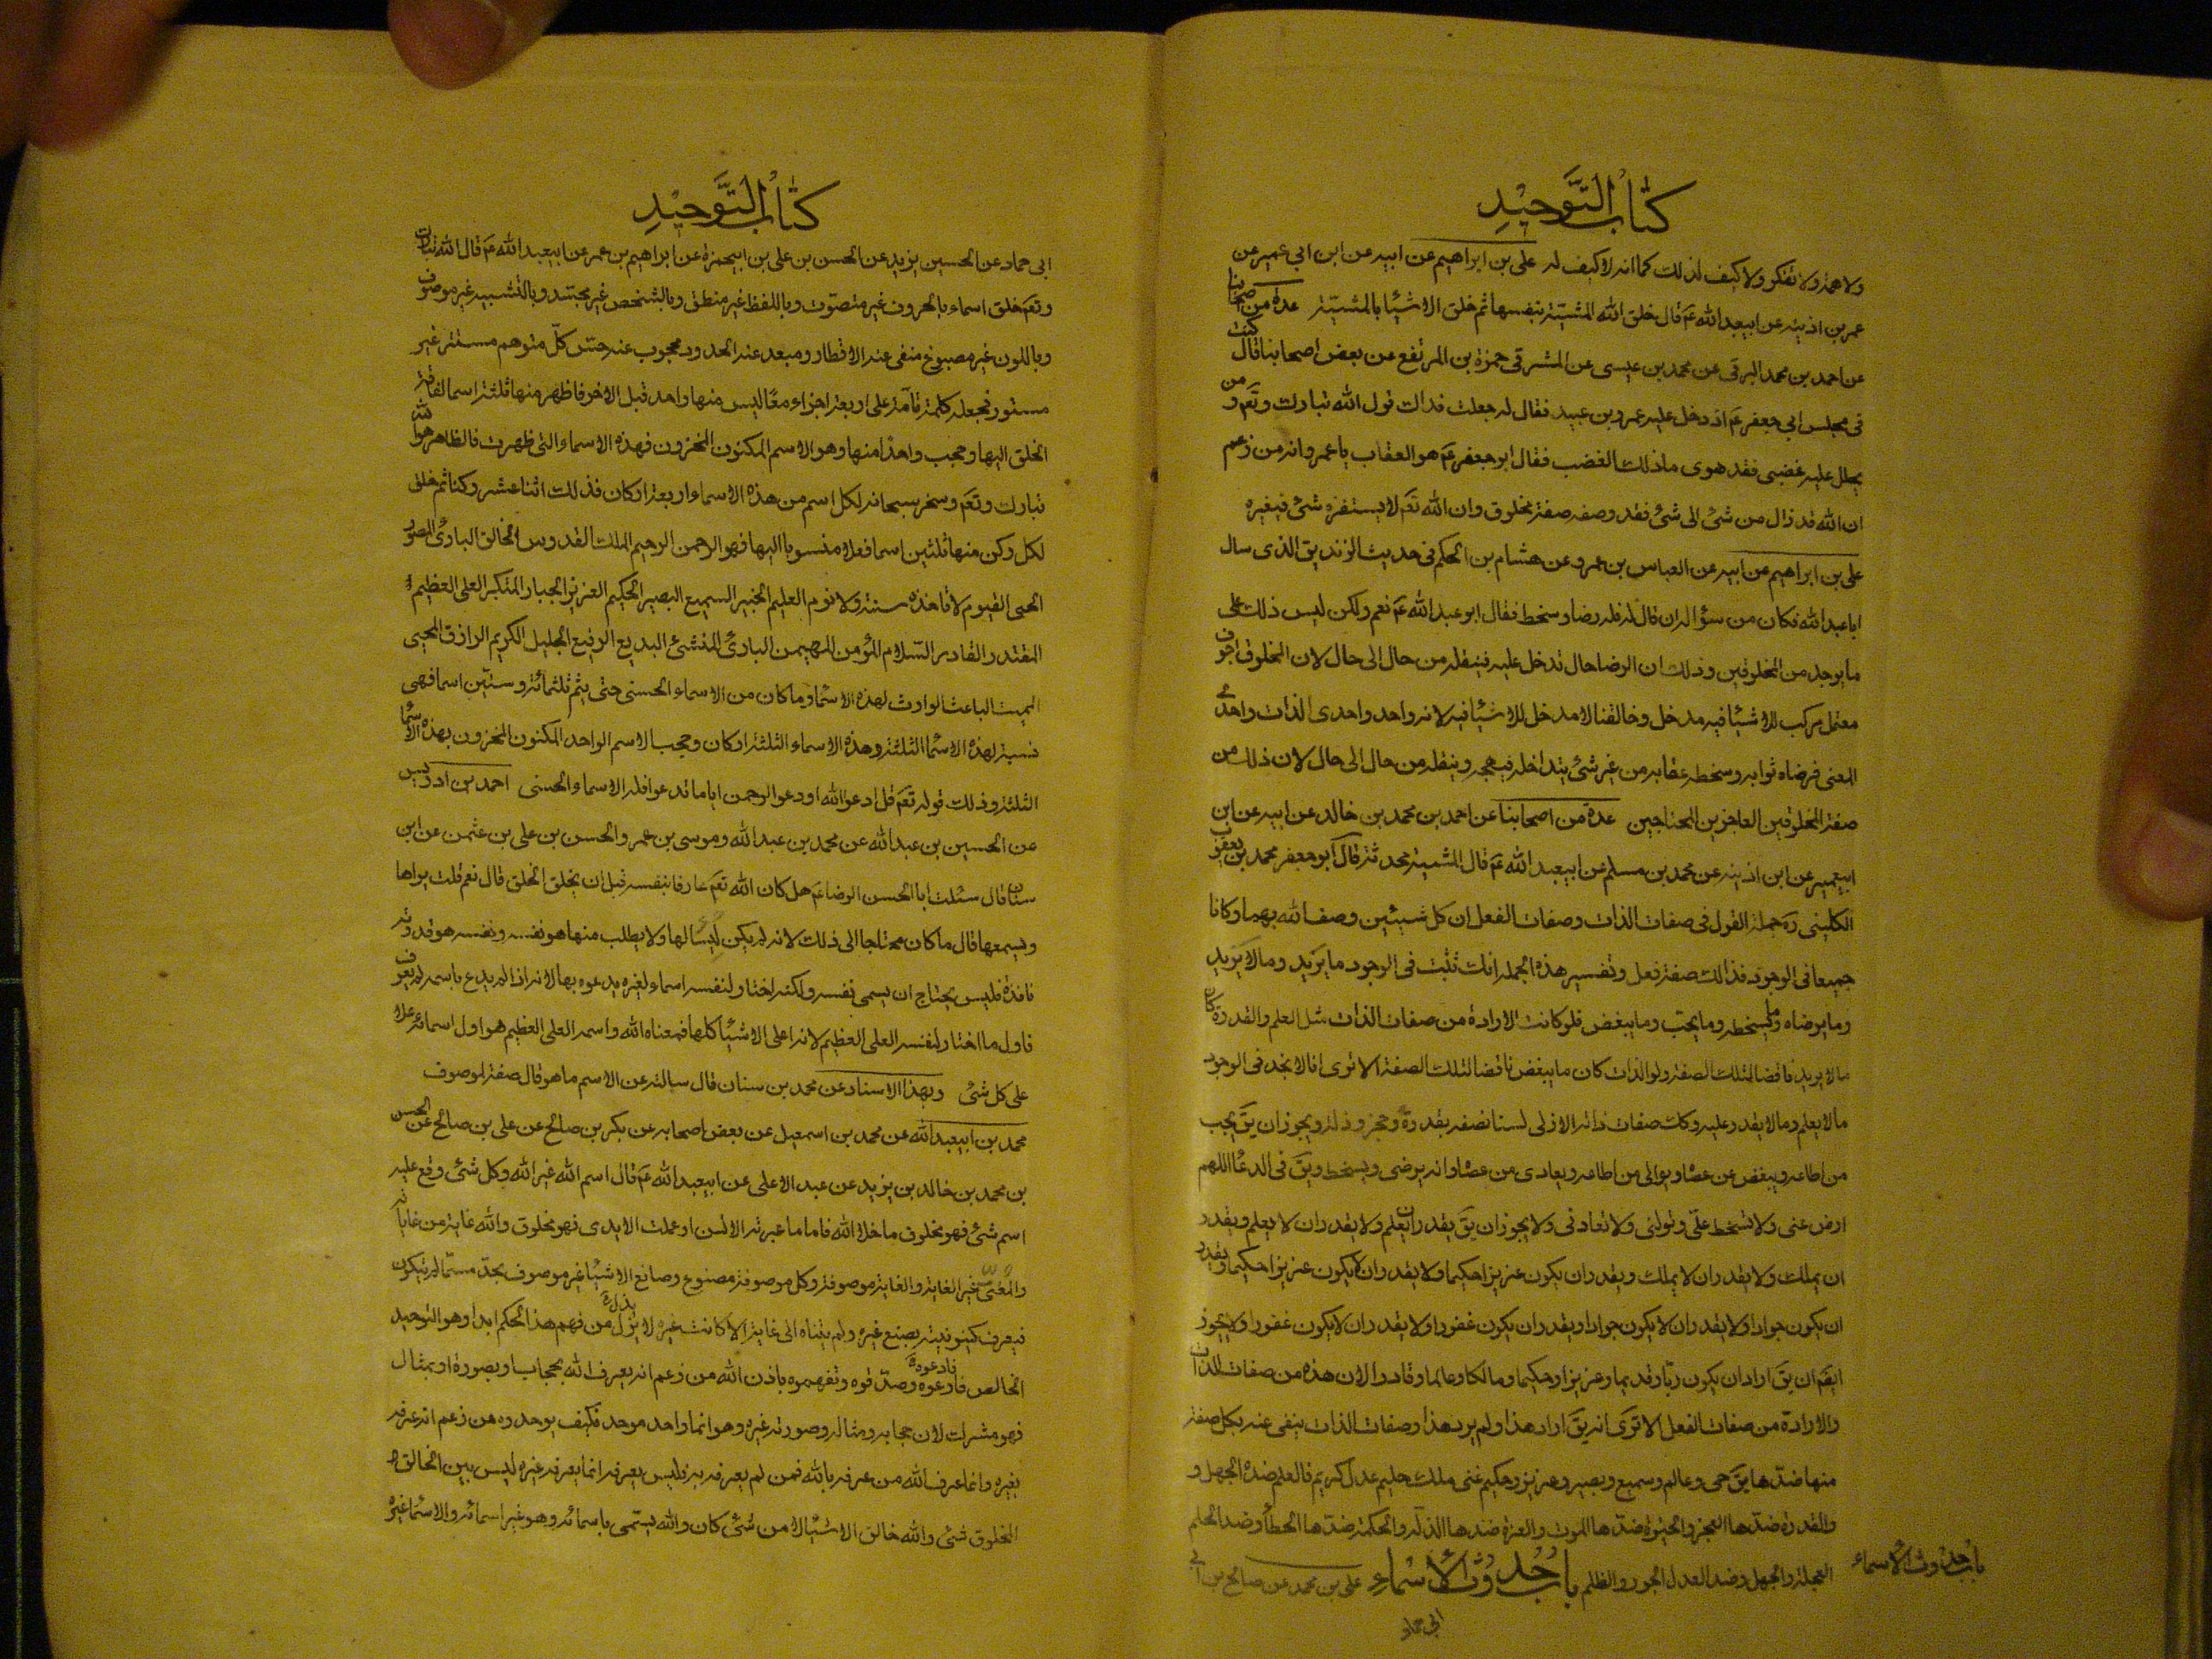 كتاب التوحيد
ولا همة ولا تفكر ولا كيف لذلك كما انه لا كيف له علي بن ابراهيم عن ابيه عن ابن ابي عمير عن
عمر بن اذينه عن ابيعبد الله عَم قال خلق الله المشيّة بنفسها ثم خلق الاشيٰا بالمشيّة عدة من اصحابنا
عن احمد بن محمد البرقي عن محمد بن عيسى عن المشرقي حمزة بن المرتفع عن بعض اصحابنا قال كنت
في مجلس ابي جعفر عَم اذ دخل عليه عمرو بن عبيد فقال له جعلت فداك قول الله تبارك وتعَم و من
يحلل عليه غضبي فقد هوى ما ذلك الغضب فقال ابو جعفر عَم هو العقاب يا عمرو انه من زعم
ان الله قد زال من شئ الى شئ فقد وصفه صفة مخلوق وان الله تعَم لا يستفزه شئ فيغيره
علي بن ابراهيم عن ابيه عن العباس بن عمرو عن هشام بن الحكم في حديث الزنديق الذى سال
ابا عبد الله فكان من سؤاله ان قال له فله رضا وسخط فقال ابو عبد الله عَم نعم ولكن ليس ذلك على
ما يوجد من المخلوقين وذلك ان الرضا حال تدخل عليه فينقله من حال الى حال لان المخلوق اجوف
معتمل مركب للاشيٰا فيه مدخل وخالقنا لا مدخل للاشيٰا فيه لانه واحد واحدى الذات واحدى
المعنى فرضاه ثوابه وسخطه عقابه من غير شئ يتداخله فيهيجه وينقله من حال الى حال لان ذلك من
صفة المخلوقين العاجزين المحتاجين عدة من اصحابنا عن احمد بن محمد بن خالد عن ابيه عن ابن
ابيعمير عن ابن اذينه عن محمد بن مسلم عن ابيعبد الله عَم قال المشية محدثة قال ابو جعفر محمد بن يعقوب
الكليني ره جملة القول في صفات الذات وصفات الفعل ان كل شيئين وصفت الله بهما وكانا
جميعا في الوجود فذلك صفة فعل وتفسير هذه الجملة انك تثبت في الوجود ما يَريد وما لا يَريد
وما يرضاه وما يسخطه وما يحب وما يبغض فلو كانت الارادة من صفات الذات مثل العلم والقدرة كان
ما لا يريد ناقضا لتلك الصفة ولو الذات كان ما يبغض ناقضا لتلك الصفة الا ترى انا لا نجد في الوجود
ما لا يعلم وما لا يقدر عليه وكذلك صفات ذاته الازلى لسنا نصفه بقدرة وعجز وذلة ويجوز ان يقَ يحب
من اطاعه ويبغض من عصٰاه ويوالى من اطاعه ويعادى من عصٰاه وانه يرضى ويسخط ويقَ في الدعٰا اللهم
ارض عنى ولا تسخط علىّ وتولنى ولا تعادنى ولا يجوز ان يقَ يقدر ان يعلم ولا يقدر ان لا يعلم ويقدر
ان يملك ولا يقدر ان لا يملك ويقدر ان يكون عزيزا حكيما ولا يقدر ان لا يكون عزيزا حكيما ويقدر
ان يكون جوادا ولا يقدر ان لا يكون جوادا ويقدر ان يكون غفورا ولا يقدر ان لا يكون غفورا ولا يجوز
ايضَ ان يقَ اراد ان يكون ربّا وقديما وعزيزا وحكيما ومالكا وعالما وقادرا لان هذه من صفات الذات
والارادة من صفات الفعل الا ترى انه يقَ اراد هذا ولم يرد هذا وصفات الذات ينفى عنه بكل صفة
منها ضدّها يقَ حى وعالم وسميع وبصير وعزيز وحكيم غنى ملك حليم عدل كريم فالعلم ضده الجهل و
والقدرة ضدّها العجز والحيٰوة ضدّها الموت والعزة ضدها الذلة والحكمة ضدّها الخطأ وضد الحلم
العجلة والجهل وضد العدل الجور والظلم باب حدوث الاسماء علي بن محمد عن صالح بن ابي
باب حدوث الاسماء
ابي حماد
كتاب التوحيد
ابى حماد عن الحسين بن يزيد عن الحسن بن علي بن ابيحمزة عن ابراهيم بن عمر عن ابيعبد الله عَم قال الله تبارك
وتعَم خلق اسماء بالحروف غير متصوّت وباللفظ غير منطق وبالشخص غير مجسّد وبالتشبيه غير موصوف
وباللون غير مصبوغ منفى عنه الاقطار ومبعد عنه الحدود محجوب عنه حسّ كلّ متوهم مستتر غير
مستور فجعله كلمة تامّة على اربعة اجزاء معًا ليس منها واحد قبل الاخر فاظهر منها ثلثة اسما لفاقة
الخلق اليها وحجب واحدًا منها وهو الاسم المكنون المخزون فهذه الاسماء التى ظهرت فالظاهر هو الله
تبارك وتعَم وسخر سبحانه لكل اسم من هذه الاسماء اربعة اركان فذلك اثنا عشر ركنا ثم خلق
لكل ركن منها ثلثين اسما فعلا منسوبا اليها فهو الرحمن الرحيم الملك القدوس الخالق البارئ المصور
الحى القيوم لا تاخذه سنة ولا نوم العليم الخبير السميع البصير الحكيم العزيز الجبار المتكبر العلى العظيم
المقتدر القادر السّلام المؤمن المهيمن البارئ المنشئ البديع الرفيع الجليل الكريم الرازق المحيى
المميت الباعث الوارث لهذه الاسمٰا وما كان من الاسماء الحسنى حتى يتم ثلثمائة وستين اسما فهى
نسبة لهذه الاسمٰا الثلثة وهذه الاسماء الثلثة اركان وحجب الاسم الواحد المكنون المخزون بهذه الاسمٰا
الثلثة وذلك قوله تعَم قل ادعوا الله او دعوا الرحمن اياما تدعوا فله الاسماء الحسنى احمد بن ادريس
عن الحسين بن عبد الله عن محمد بن عبد الله وموسى بن عمر والحسن بن علي بن عثمن عن ابن
سنان قال سئلت ابا الحسن الرضا عَم هل كان الله تعَم عارفا بنفسه قبل ان يخلق الخلق قال نعم قلت يراها
ويسمعها قال ما كان محتاجا الى ذلك لانه لم يكن يسالها ولا يطلب منها هو نفسه ونفسه هو قدرته
نافذة فليس يحتاج ان يسمى نفسه ولكنه اختار لنفسه اسماء لغيره يدعوه بها لانه اذا لم يدع باسمه لم يعرف
فاول ما اختار لنفسه العلى العظيم لانه اعلى الاشيٰا كلها فمعناه الله واسمه العلى العظيم هو اول اسمائه علا
على كل شئ وبهذا الاسناد عن محمد بن سنان قال سالته عن الاسم ما هو قال صفة لموصوف
محمد بن ابيعبد الله عن محمد بن اسمعيل عن بعض اصحابه عن بكر بن صالح عن علي بن صالح عن الحسن
بن محمد بن خالد بن يزيد عن عبد الاعلى عن ابيعبد الله عَم قال اسم الله غير الله وكل شئ وقع عليه
اسم شئ فهو مخلوق ما خلا الله فاما ما عبرته الالسن او عملت الايدى فهو مخلوق والله غاية من غاياته
والمعنى غير الغاية والغاية موصوفة وكل موصوفة مصنوع وصانع الاشيٰا غير موصوف بحدّ مسمّى لم يتكون
فيعرف كينونيته بصنع غيره ولم يتناه الى غاية الا كانت غيره لا يزل من فهم هذا الحكم ابدا وهو التوحيد
الخالص فارعوه وصدّقوه وتفهموه باذن الله من زعم انه يعرف الله بحجاب او بصورة او بمثال
فادعوه
فهو مشرك لان حجابه ومثاله وصورته غيره وهو انما واحد موحد فكيف يوحده من زعم انه عرفه
بغيره وانما عرف الله من عرفه بالله فمن لم يعرفه به فليس يعرفه انما يعرفه غيره ليس بين الخالق و
المخلوق شئ والله خالق الاشيٰا لا من شئ كان والله يسمى باسمائه وهو غير اسمائه والاسمٰا غيره